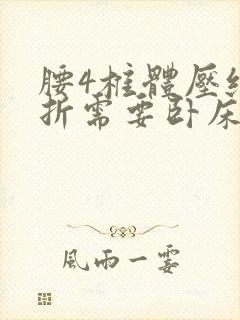 腰4椎體壓
折需要卧床
風雨一霎